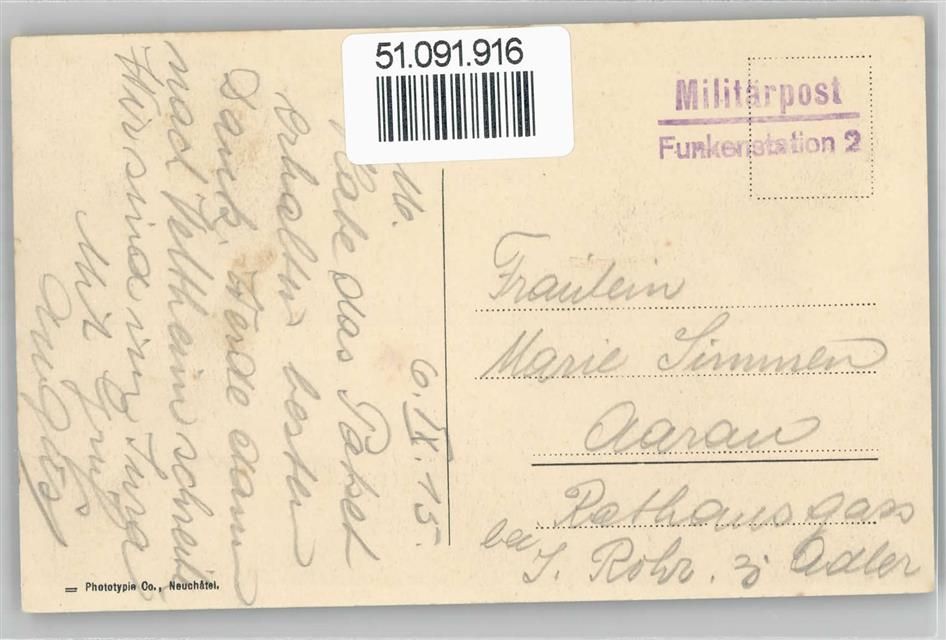 51.091.916
Militärpost
Funkenstation 2
Fräulein
Marie Simmen
Aarau
Rathausgass
bei J. Rohr. z. Adler
6. IX. 15.
Habe das Paket
erhalten bester
Dank. Werde dann
nach Veltheim schreib
Wir sind im Jura
Mit Gruss
Phototypie Co., Neuchâtel.